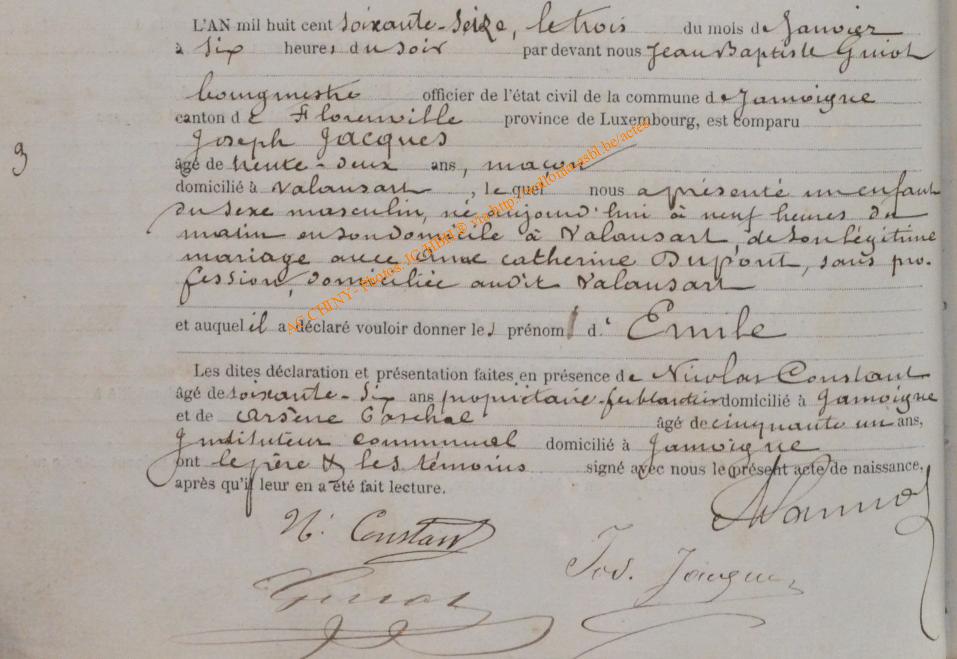 L'AN mil huit cent soixante-seize, le trois du mois de Janvier
à six heures du soir par devant nous Jean Baptiste Guiot
bourgmestre officier de l'état civil de la commune de Jamoigne
canton de Florenville province de Luxembourg, est comparu
Joseph Jacques
3
âgé de trente-deux ans, maçon
domicilié à Valansart, lequel nous a présenté un enfant
du sexe masculin, né aujourd'hui à neuf heures du
matin en son domicile à Valansart, de son légitime
mariage avec Anne catherine Dupont, sans pro-
fession, domiciliée audit Valansart
et auquel il a déclaré vouloir donner le prénom d' Emile
Les dites déclaration et présentation faites en présence de Nicolas Constant
âgé de soixante-six ans propriétaire-ferblantier domicilié à Jamoigne
et de Arsène Paschal âgé de cinquante un ans,
Instituteur communal domicilié à Jamoigne
ont le père & les témoins signé avec nous le présent acte de naissance,
après qu'il leur en a été fait lecture.
N. Constant
Jos. Jacques
Guiot
AG CHINY - Photos: JC MHM © via http://wallonia-asbl.be/actes